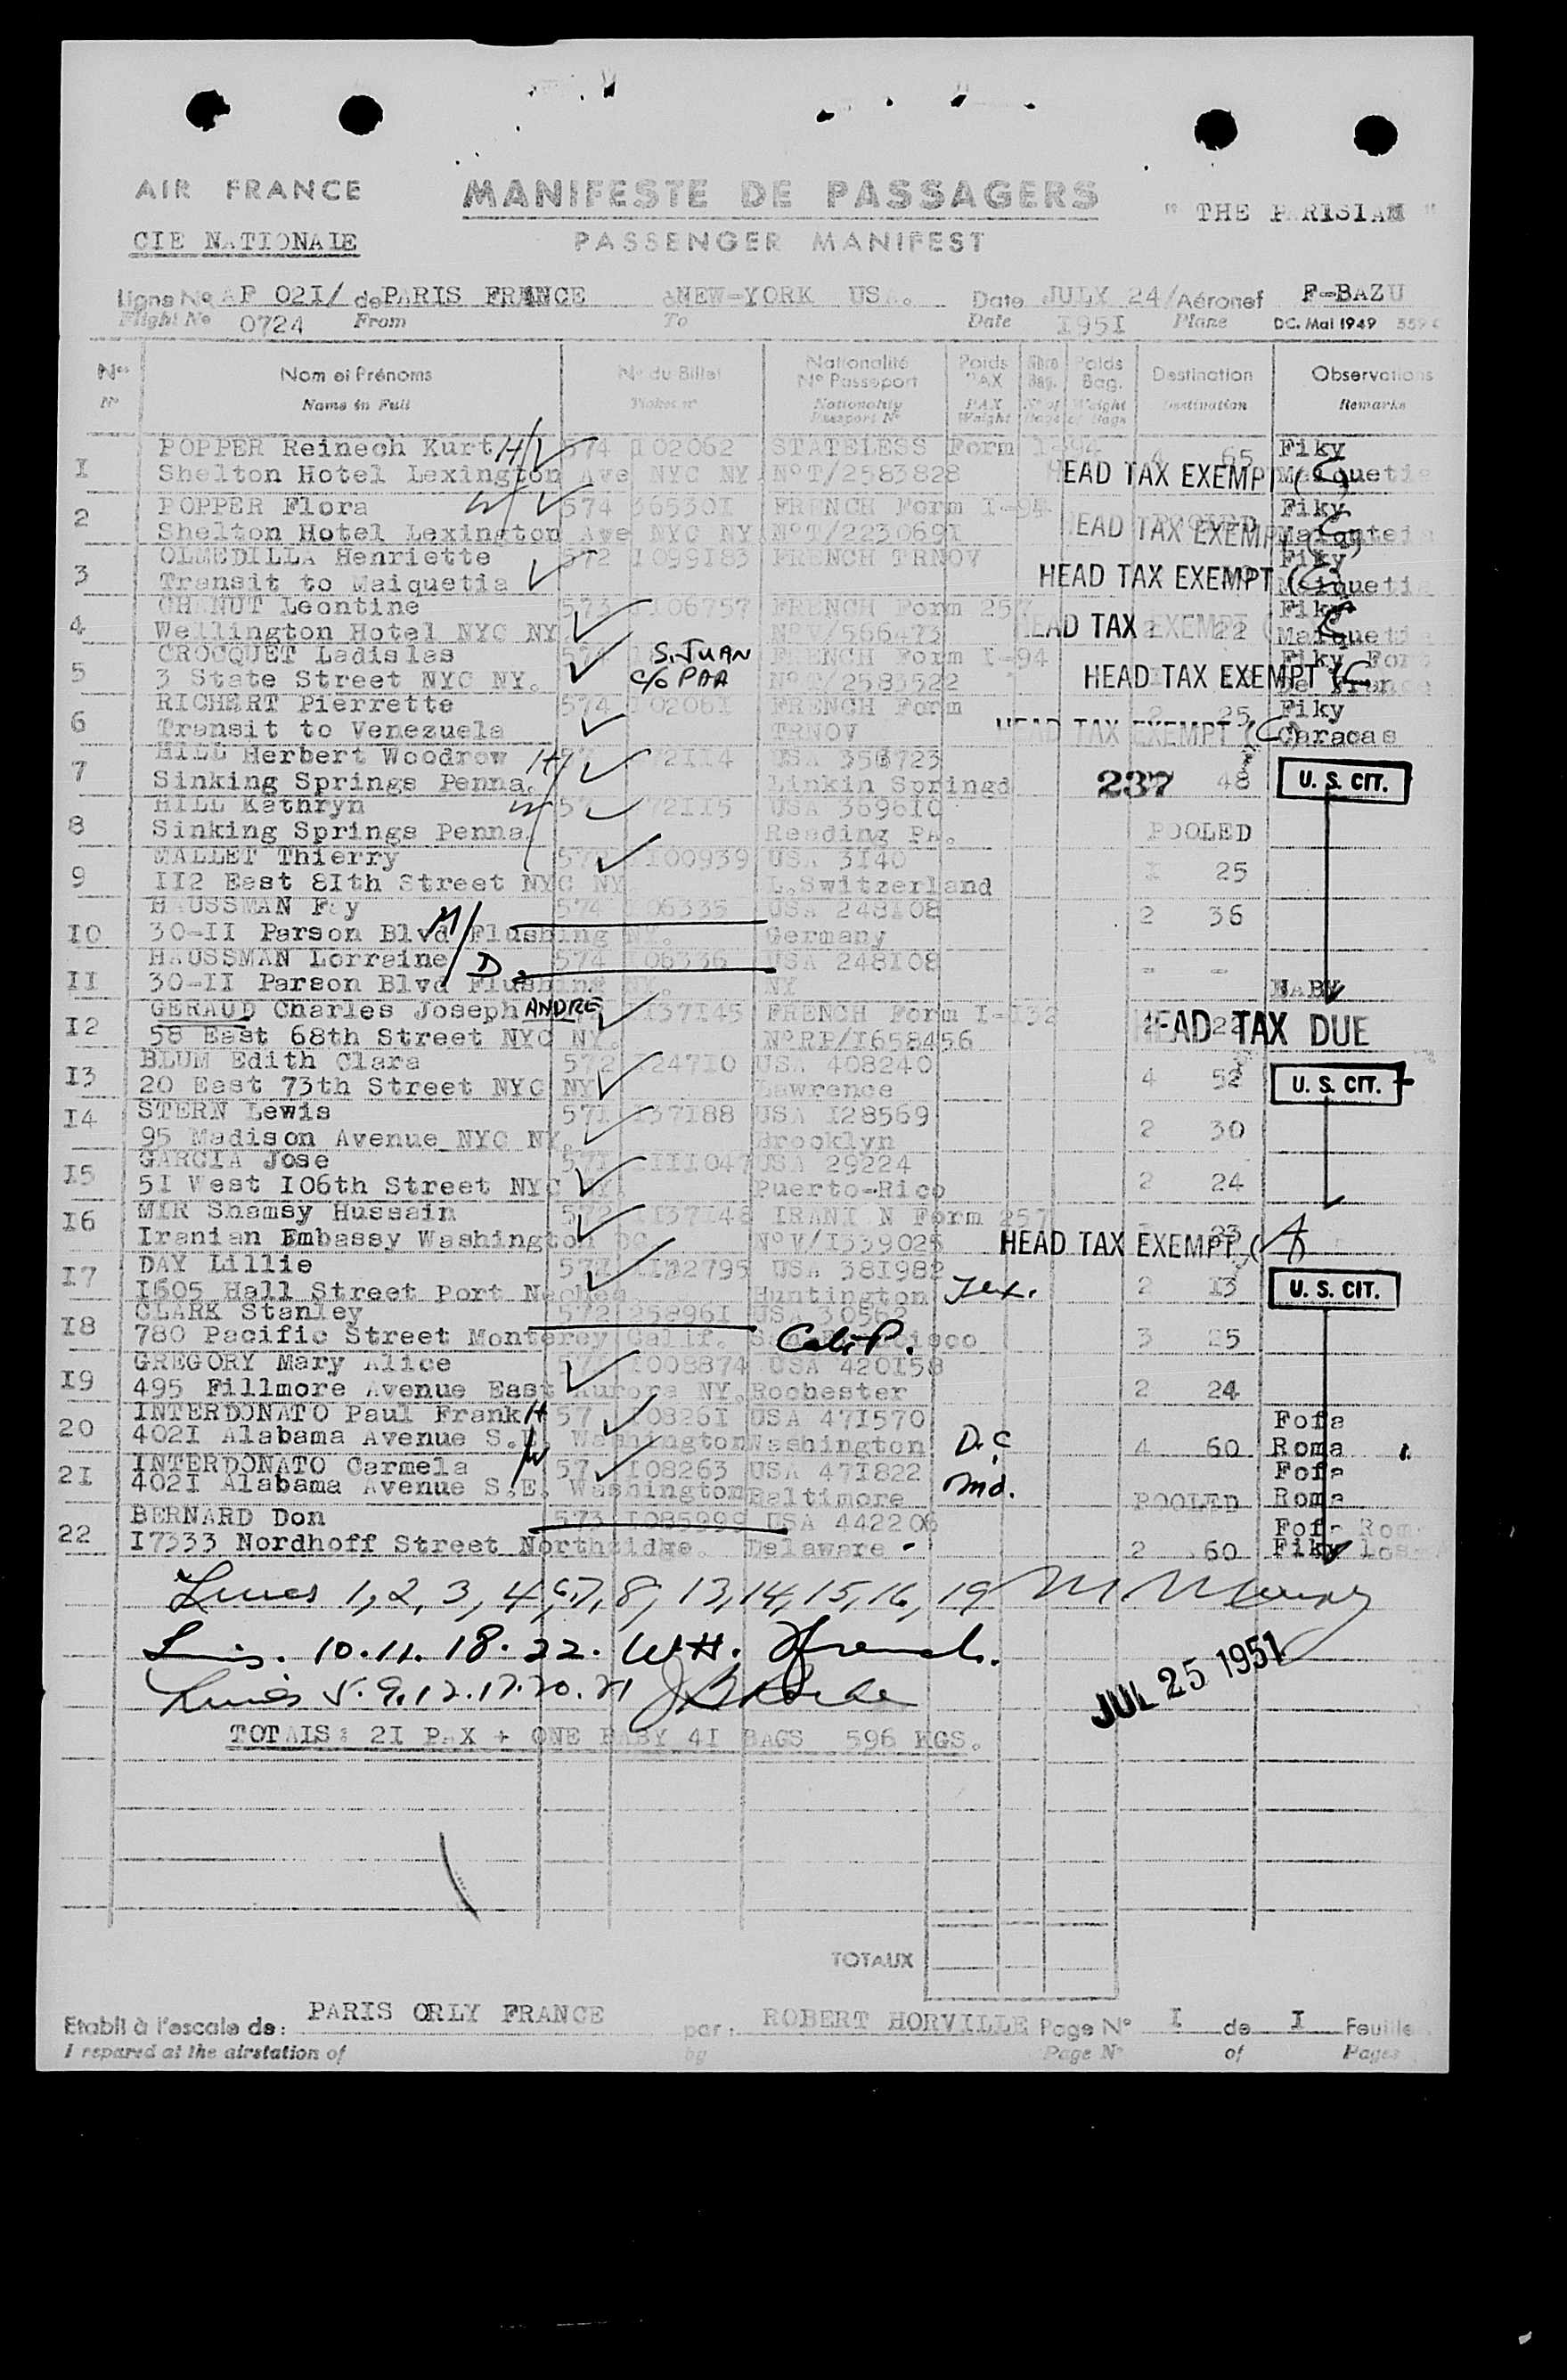 AIR FRANCE
MANIFESTE DE PASSAGERS
" THE PARISIAN "
CIE NATIONALE
PASSENGER MANIFEST
Ligne No AF 021/ de PARIS FRANCE à NEW-YORK USA. Date JULY 24/ Aéronef F-BAZU
Flight No 0724 From To Date 1951 Plane DC. Mai 1949
Nos Nom et Prénoms No du Billet Nationalité No Passeport Poids PAX Nbre Bag. Poids Bag. Destination Observations
No Name in Full Ticket no Nationality Passport No PAX Weight No of Bags Weight of Bags Destination Remarks
POPPER Reinech Kurt H/ 574 102062 STATELESS Form I-94 4 65 Fiky
1 Shelton Hotel Lexington Ave NYC NY NoT/2583828 HEAD TAX EXEMPT (C) Maiquetia
POPPER Flora W 574 365301 FRENCH Form I-94 Fiky
2 Shelton Hotel Lexington Ave NYC NY NoT/2230691 HEAD TAX EXEMPT (C) Maiquetia
OLMEDILLA Henriette 572 1099183 FRENCH TRNOV Fiky
3 Transit to Maiquetia HEAD TAX EXEMPT (C) Maiquetia
CHANUT Leontine 573 1106757 FRENCH Form 257 Fiky
4 Wellington Hotel NYC NY. NoV/566473 HEAD TAX EXEMPT 2 22 Maiquetia
CROCQUET Ladislas 574 S. JUAN FRENCH Form I-94 Fiky Fort
5 3 State Street NYC NY. c/o PAA NoT/2583522 HEAD TAX EXEMPT (C De France
RICHERT Pierrette 574 102061 FRENCH Form 2 25 Fiky
6 Transit to Venezuela TRNOV HEAD TAX EXEMPT (C) Caracas
HILL Herbert Woodrow H/ 57 72114 USA 356723
7 Sinking Springs Penna. Linkin Springd 237 48 U. S. CIT.
HILL Kathryn W 57 72115 USA 369610
8 Sinking Springs Penna. Reading PA. POOLED
MALLET Thierry 572 1100939 USA 3140
9 112 East 81th Street NYC NY. L.Switzerland 1 25
HAUSSMAN Fay 574 106335 USA 248108 2 36
10 30-11 Parson Blvd Flushing NY. M/ Germany
HAUSSMAN Lorraine D 574 106336 USA 248108 - -
11 30-11 Parson Blvd Flushing NY. NY BABY
GERAUD Charles Joseph ANDRE 1137145 FRENCH Form I-132
12 58 East 68th Street NYC NY. NoRP/1658456 2 22 HEAD TAX DUE
BLUM Edith Clara 572 124710 USA 408240
13 20 East 73th Street NYC NY Lawrence 4 52 U. S. CIT.
STERN Lewis 571 137188 USA 128569
14 95 Madison Avenue NYC NY. Brooklyn 2 30
GARCIA Jose 571 1111047 USA 29224
15 51 West 106th Street NYC NY. Puerto-Rico 2 24
MIR Shamsy Hussain 572 1137148 IRANIAN Form 257
16 Iranian Embassy Washington DC NoV/1339025 HEAD TAX EXEMPT (A)
DAY Lillie 571 1122795 USA 381982
17 1605 Hall Street Port Neches Huntington Tex. 2 13 U. S. CIT.
CLARK Stanley 572 258961 USA 30562
18 780 Pacific Street Monterey Calif. San Francisco Calif. 3 25
GREGORY Mary Alice 571 1008874 USA 420158
19 495 Fillmore Avenue East Aurora NY. Rochester 2 24
INTERDONATO Paul Frank H 57 108261 USA 471570 Fofa
20 4021 Alabama Avenue S.E. Washington Washington D.C 4 60 Roma
INTERDONATO Carmela W 57 108263 USA 471822 Fofa
21 4021 Alabama Avenue S.E. Washington Baltimore Md. POOLED Roma
BERNARD Don 573 1085999 USA 442206 Fofa Roma
22 17333 Nordhoff Street Northridge. Delaware 2 60 Fiky Los
Lines 1, 2, 3, 4, 6, 7, 8, 13, 14, 15, 16, 19
Lins. 10. 11. 18. 22. W.H. French.
Lines 5. 9. 12. 17. 20. 21
JUL 25 1951
TOTAIS: 21 PAX + ONE BABY 41 BAGS 596 KGS.
TOTAUX
Etabli à l'escale de: PARIS ORLY FRANCE par: ROBERT HORVILLE Page No 1 de 1 Feuille
I repared at the airstation of by Page No of Pages